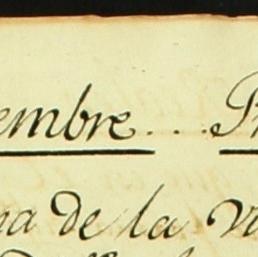 embre... Pr
na de la v